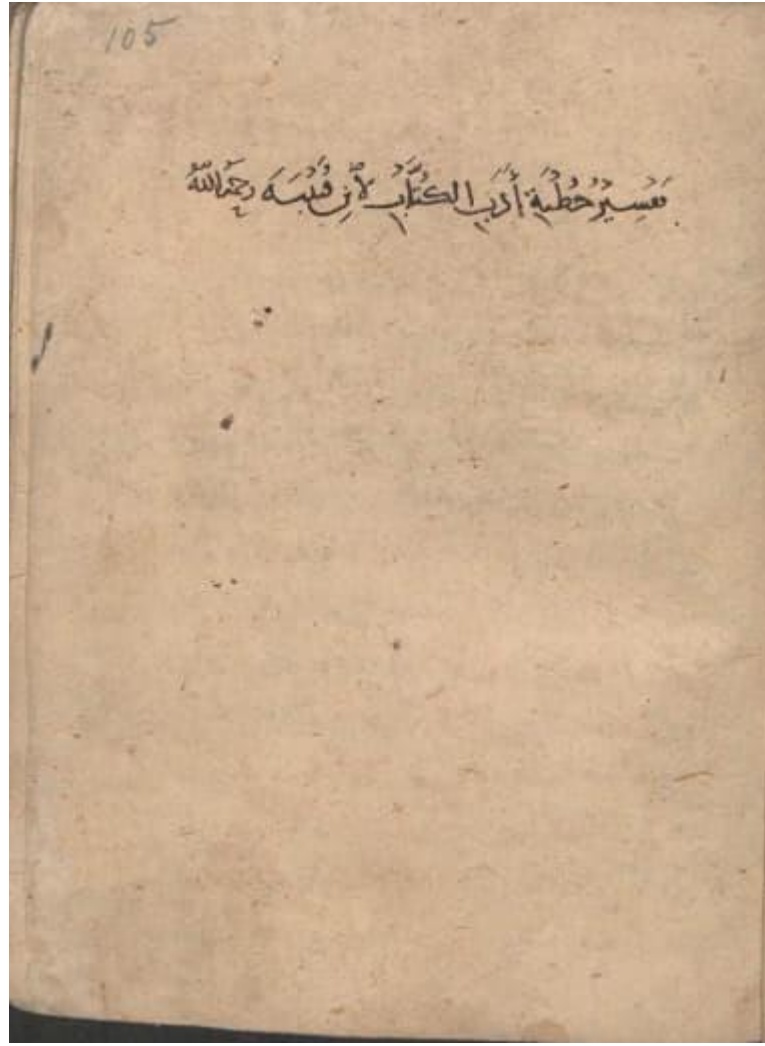 105
تفسير خطبة أدب الكتاب لابن قتيبة رحمه الله